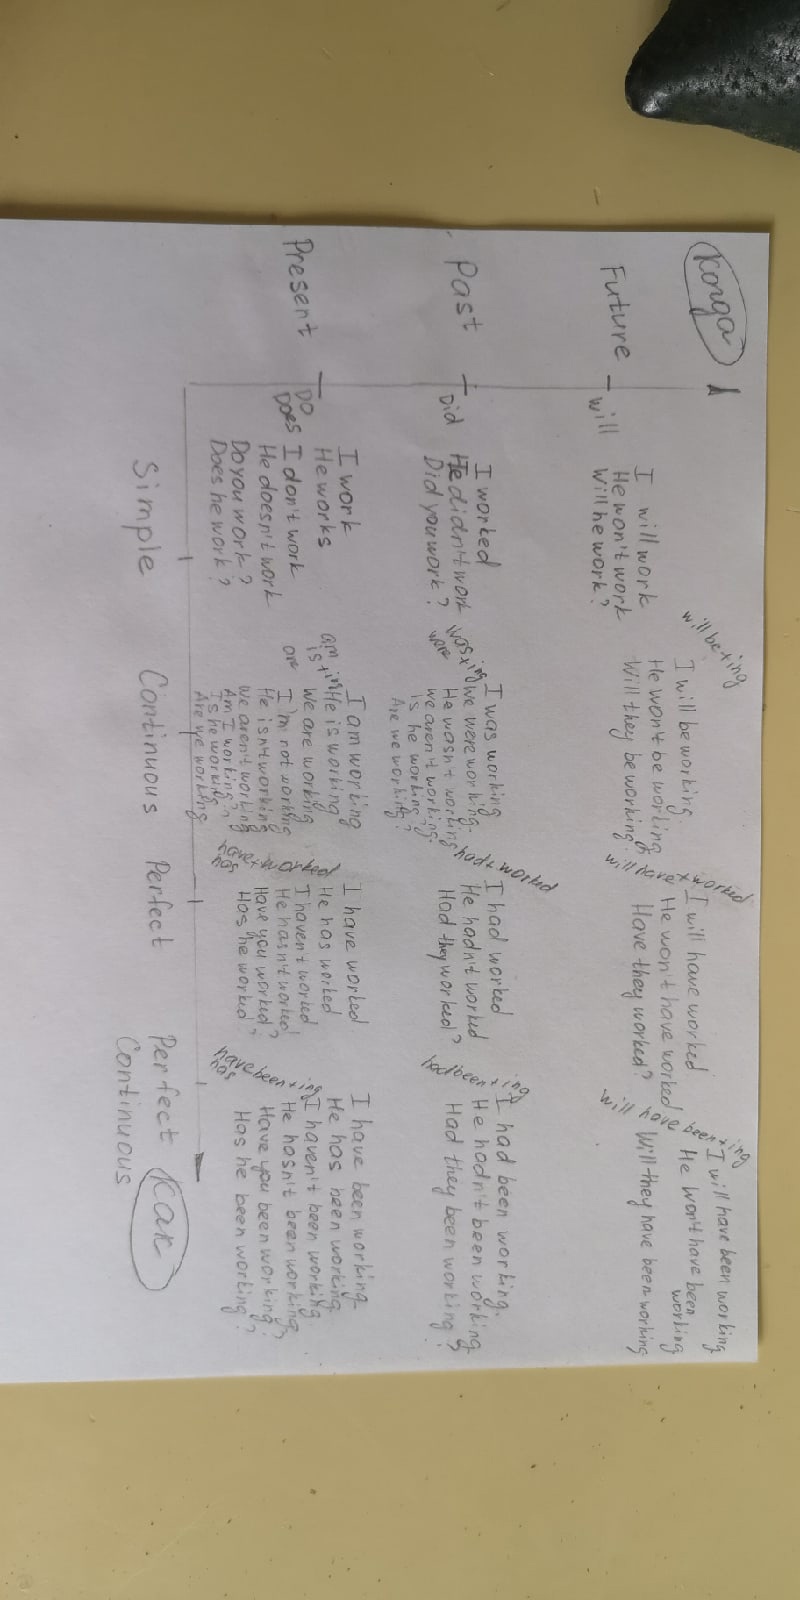 когда
will be+ing
will have+worked
will have been+ing
Future
will
I will work
He won't work
Will he work?
I will be working.
He won't be working
Will they be working?
I will have worked
He won't have worked
Have they worked?
I will have been working
He won't have been
working
Will they have been working
Past
Did
I worked
He didn't work
Did you work?
was +ing
were
I was working
we were working.
He wasn't working
we aren't working.
Is he working?
Are we working?
had+worked
I had worked
He hadn't worked
Had they worked?
had been+ing
I had been working.
He hadn't been working
Had they been working?
Present
DO
Does
I work
He works
I don't work
He doesn't work
Do you work?
Does he work?
am
is +in
are
I am working
He is working
We are working
I'm not working
He isn't working
we aren't working
Am I working?
Is he working
Are we working
have+worked
has
I have worked
He has worked
I haven't worked
He hasn't worked
Have you worked?
Has he worked
have been+ing
has
I have been working
He has been working
I haven't been working
He hasn't been working
Have you been working?
Has he been working?
Simple
Continuous
Perfect
Perfect
Continuous
как